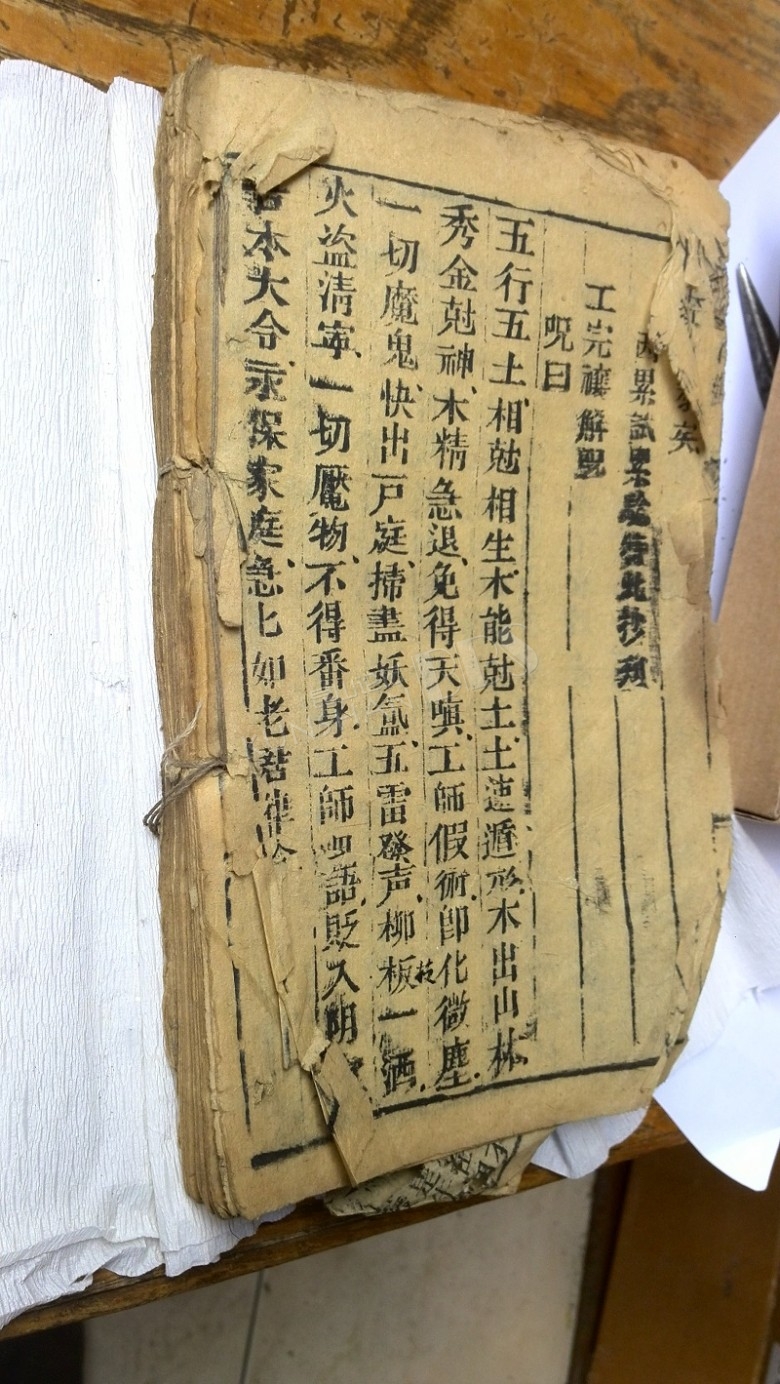 矣
累試累驗
工完禳解呪
呪曰
五行五土相尅相生木能尅土土速遁形木出山林
秀金尅神木精急退免得天嗔工師假術卽化微塵
一切魔鬼快出戸庭掃盡妖氛五雷發声柳板一洒
枝
火盗清寧一切魘物不得番身工師語貶入
本大令永保家庭急匕如老君律令